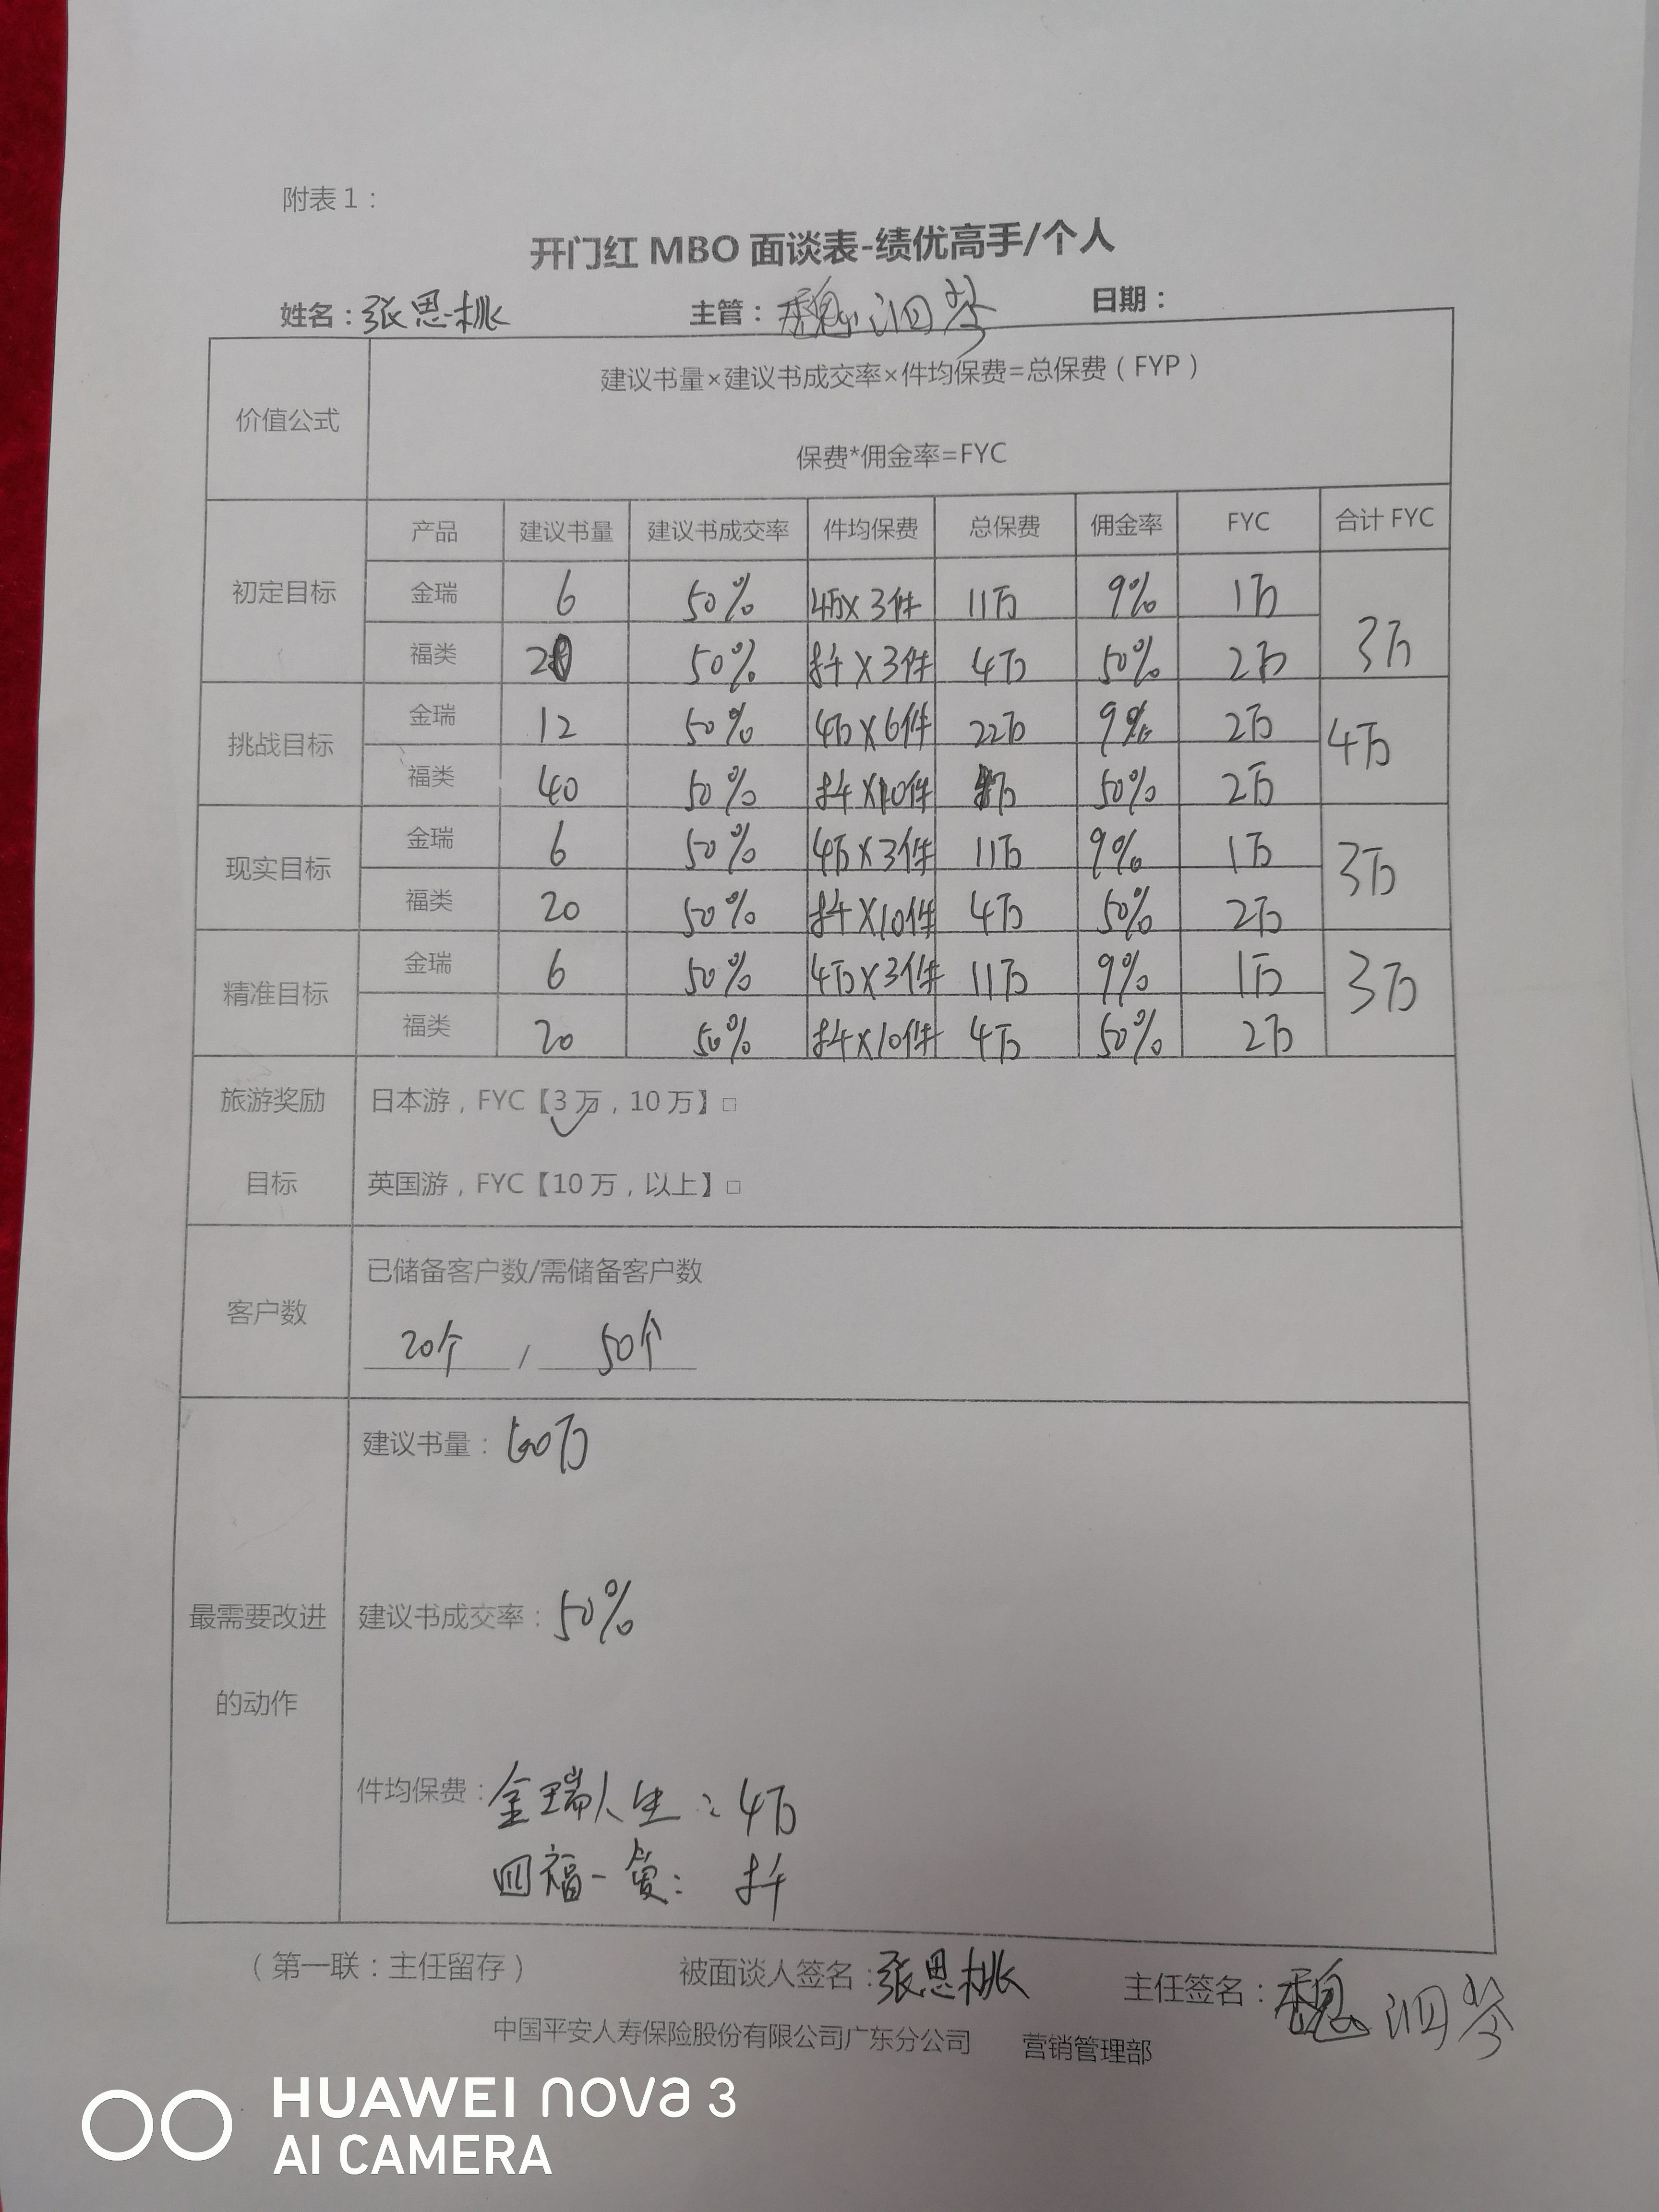 附表1：
开门红 MBO 面谈表-绩优高手/个人
姓名：张思桃 主管：魏泗芩 日期：
价值公式 建议书量×建议书成交率×件均保费=总保费（FYP）
保费*佣金率=FYC
产品 建议书量 建议书成交率 件均保费 总保费 佣金率 FYC 合计 FYC
初定目标 金瑞 6 50% 4万×3件 11万 9% 1万 3万
福类 50% 千×3件 4万 50% 2万
挑战目标 金瑞 12 50% 4万×6件 22万 9% 2万 4万
福类 40 50% 千×10件 万 50% 2万
现实目标 金瑞 6 50% 4万×3件 11万 9% 1万 3万
福类 20 50% 千×10件 4万 50% 2万
精准目标 金瑞 6 50% 4万×3件 11万 9% 1万 3万
福类 20 50% 千×10件 4万 50% 2万
旅游奖励 日本游，FYC【3万，10万】□
目标 英国游，FYC【10万，以上】□
已储备客户数/需储备客户数
客户数 20个 / 50个
建议书量：
最需要改进 建议书成交率：50%
的动作
件均保费：金瑞人生：4万
福一 ： 千
（第一联：主任留存） 被面谈人签名：张思桃 主任签名：魏泗芩
中国平安人寿保险股份有限公司广东分公司 营销管理部
HUAWEI nova 3
AI CAMERA